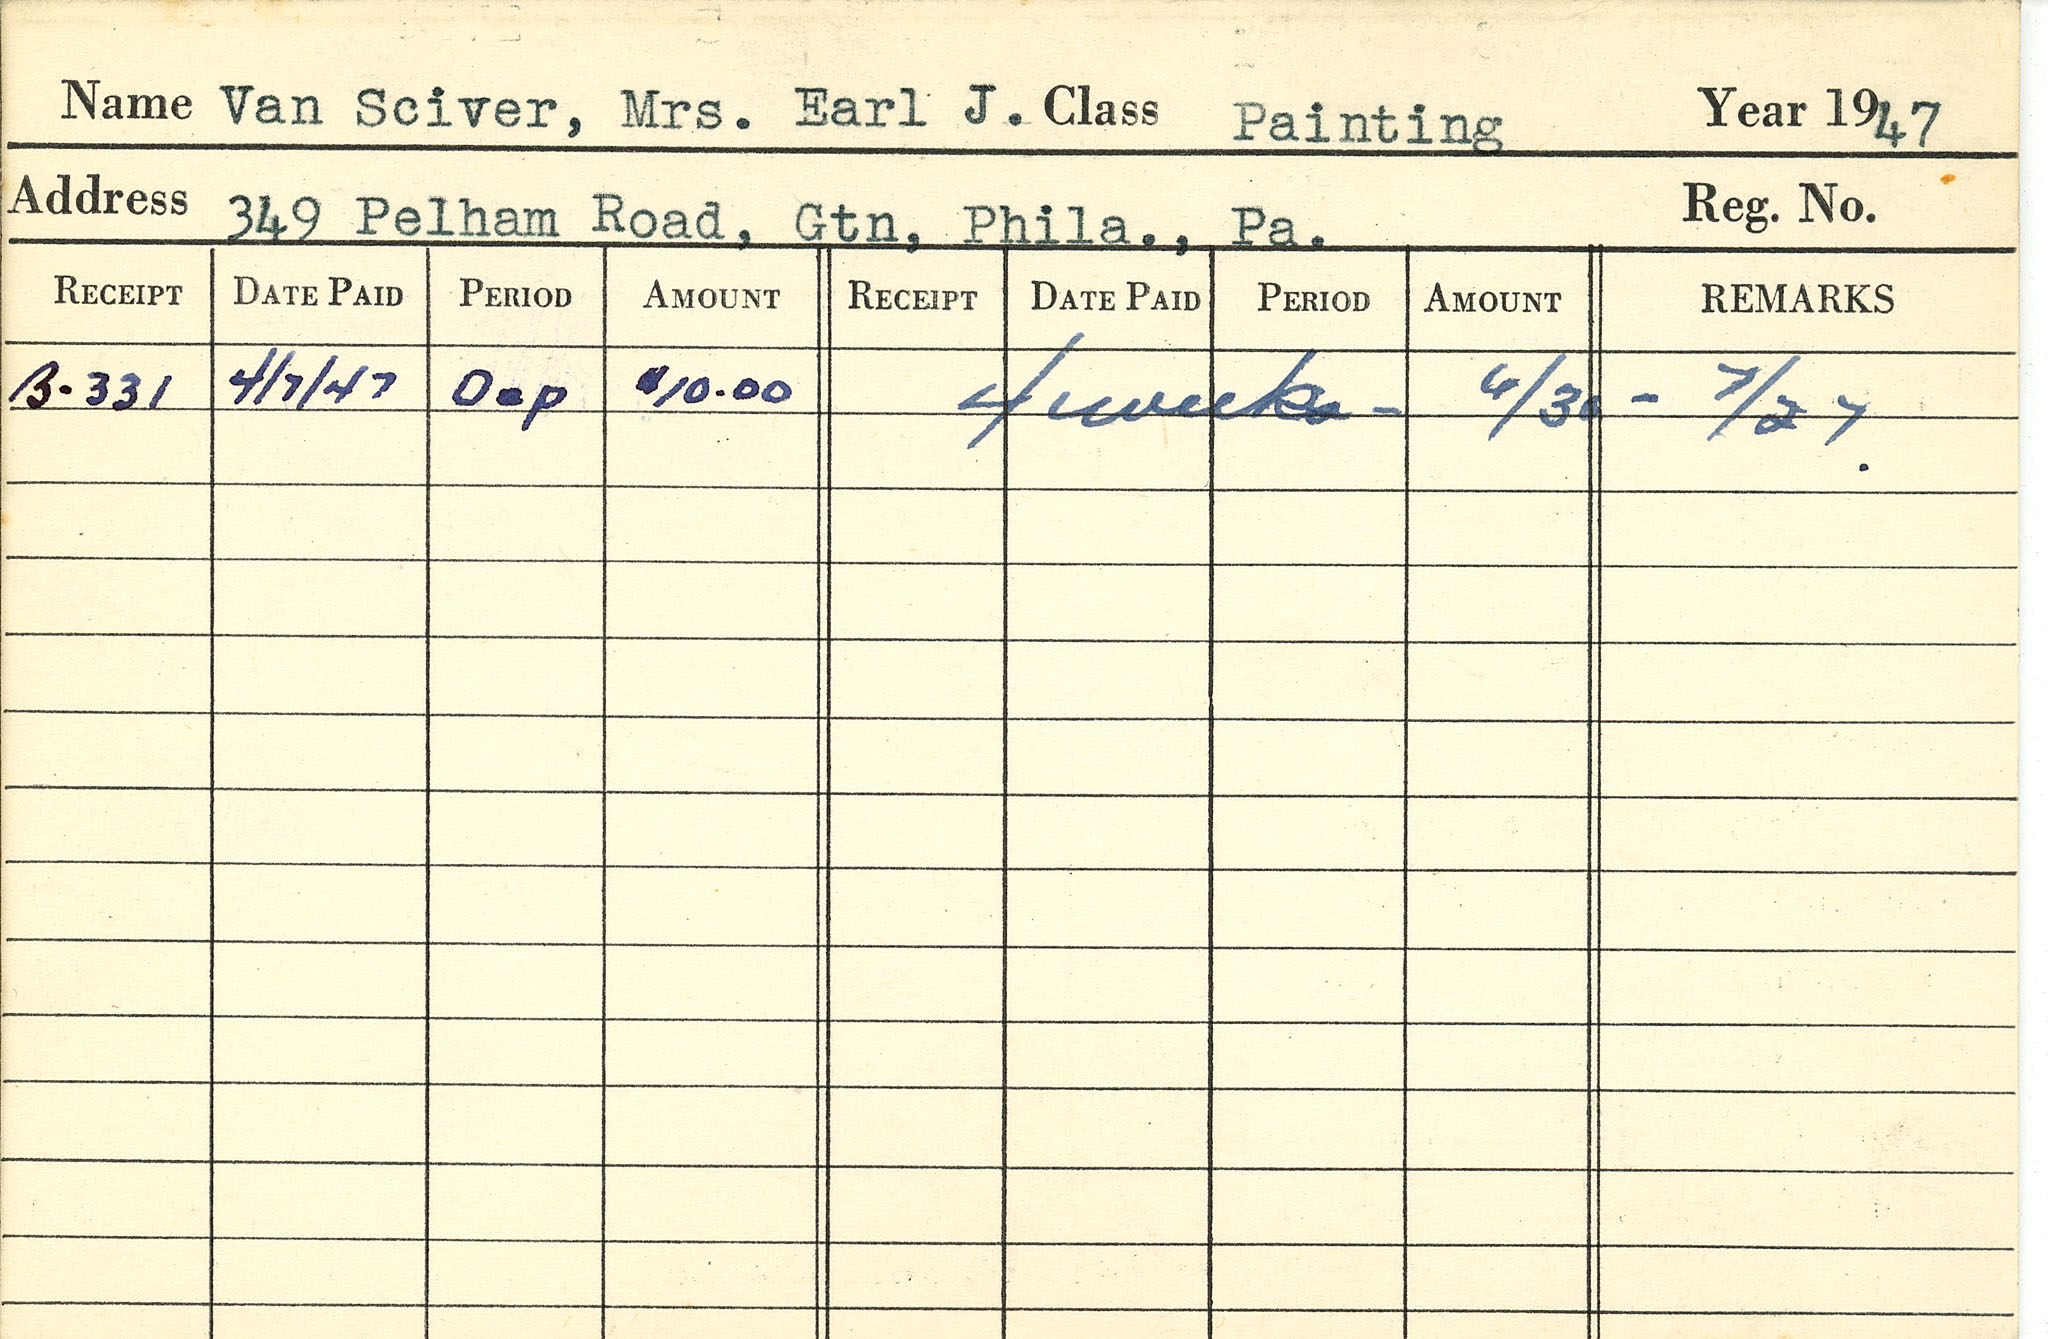 Name Van Sciver, Mrs. Earl J. Class Painting Year 1947
Address 349 Pelham Road, Gtn, Phila., Pa. Reg. No.
RECEIPT DATE PAID PERIOD AMOUNT RECEIPT DATE PAID PERIOD AMOUNT REMARKS
B-331 4/7/47 Dep $10.00 4 weeks - 6/30 - 7/27.